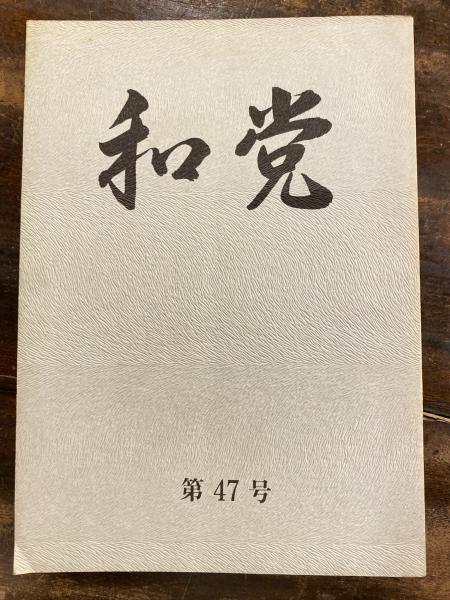 和党
第47号